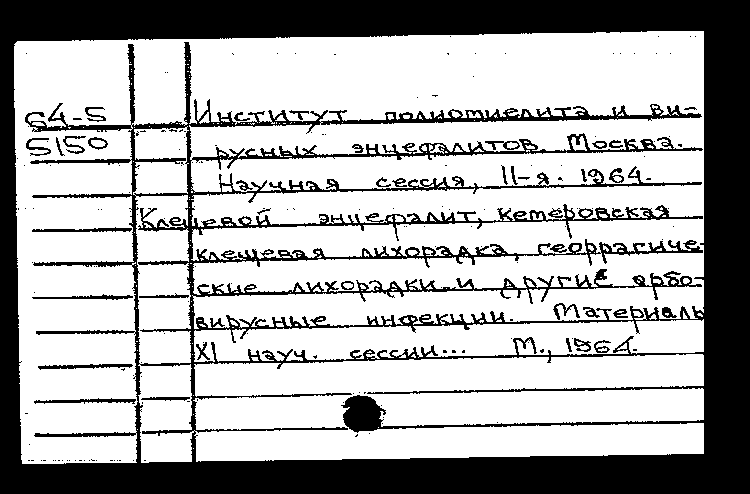 64-5 Институт полиомиелита и ви-
5150 русных энцефалитов. Москва.
Научная сессия, 11-я. 1964.
Клещевой энцефалит, кемеровская
клещевая лихорадка, георрагиче-
ские лихорадки и другие арбо-
вирусные инфекции. Материалы
XI науч. сессии... М., 1964.